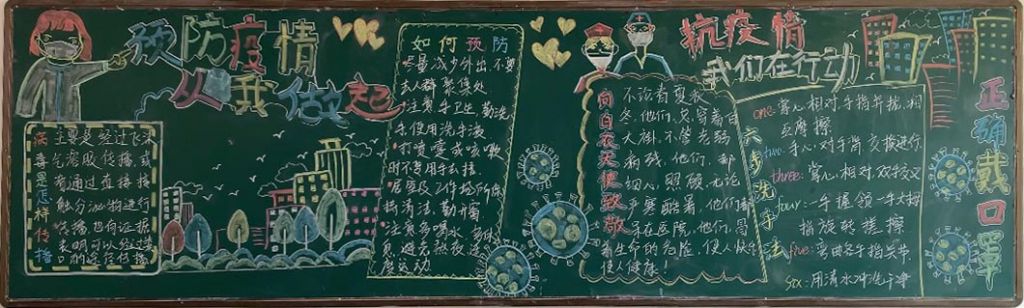 预防疫情
从我做起
病毒是怎样传播
主要是经过飞沫
有通过直接接
触分泌物进行
传播,也有证据
表明可以经过
如何预防
尽量减少外出,不要
去人群聚集处
注意手卫生,勤洗
手使用洗手液
打喷嚏或咳嗽
时不要用手去接
注意多喝水
度运动
抗疫情
我们在行动
向白衣天使致敬
不论春夏秋
冬,他们总穿着白
大褂,不管老弱
病残,他们都
细心照顾,无论
严寒酷暑,他们都
守在医院,他们冒
着生命的危险,使人
使人健康!
六步洗手法
one:掌心相对手指并拢,相
互摩擦
two:手心对手背交换进行
three:掌心相对双手交叉
four:一手握领一手大拇
指旋转搓擦
five:弯曲各手指关节
six:用清水冲洗干净
正确戴口罩